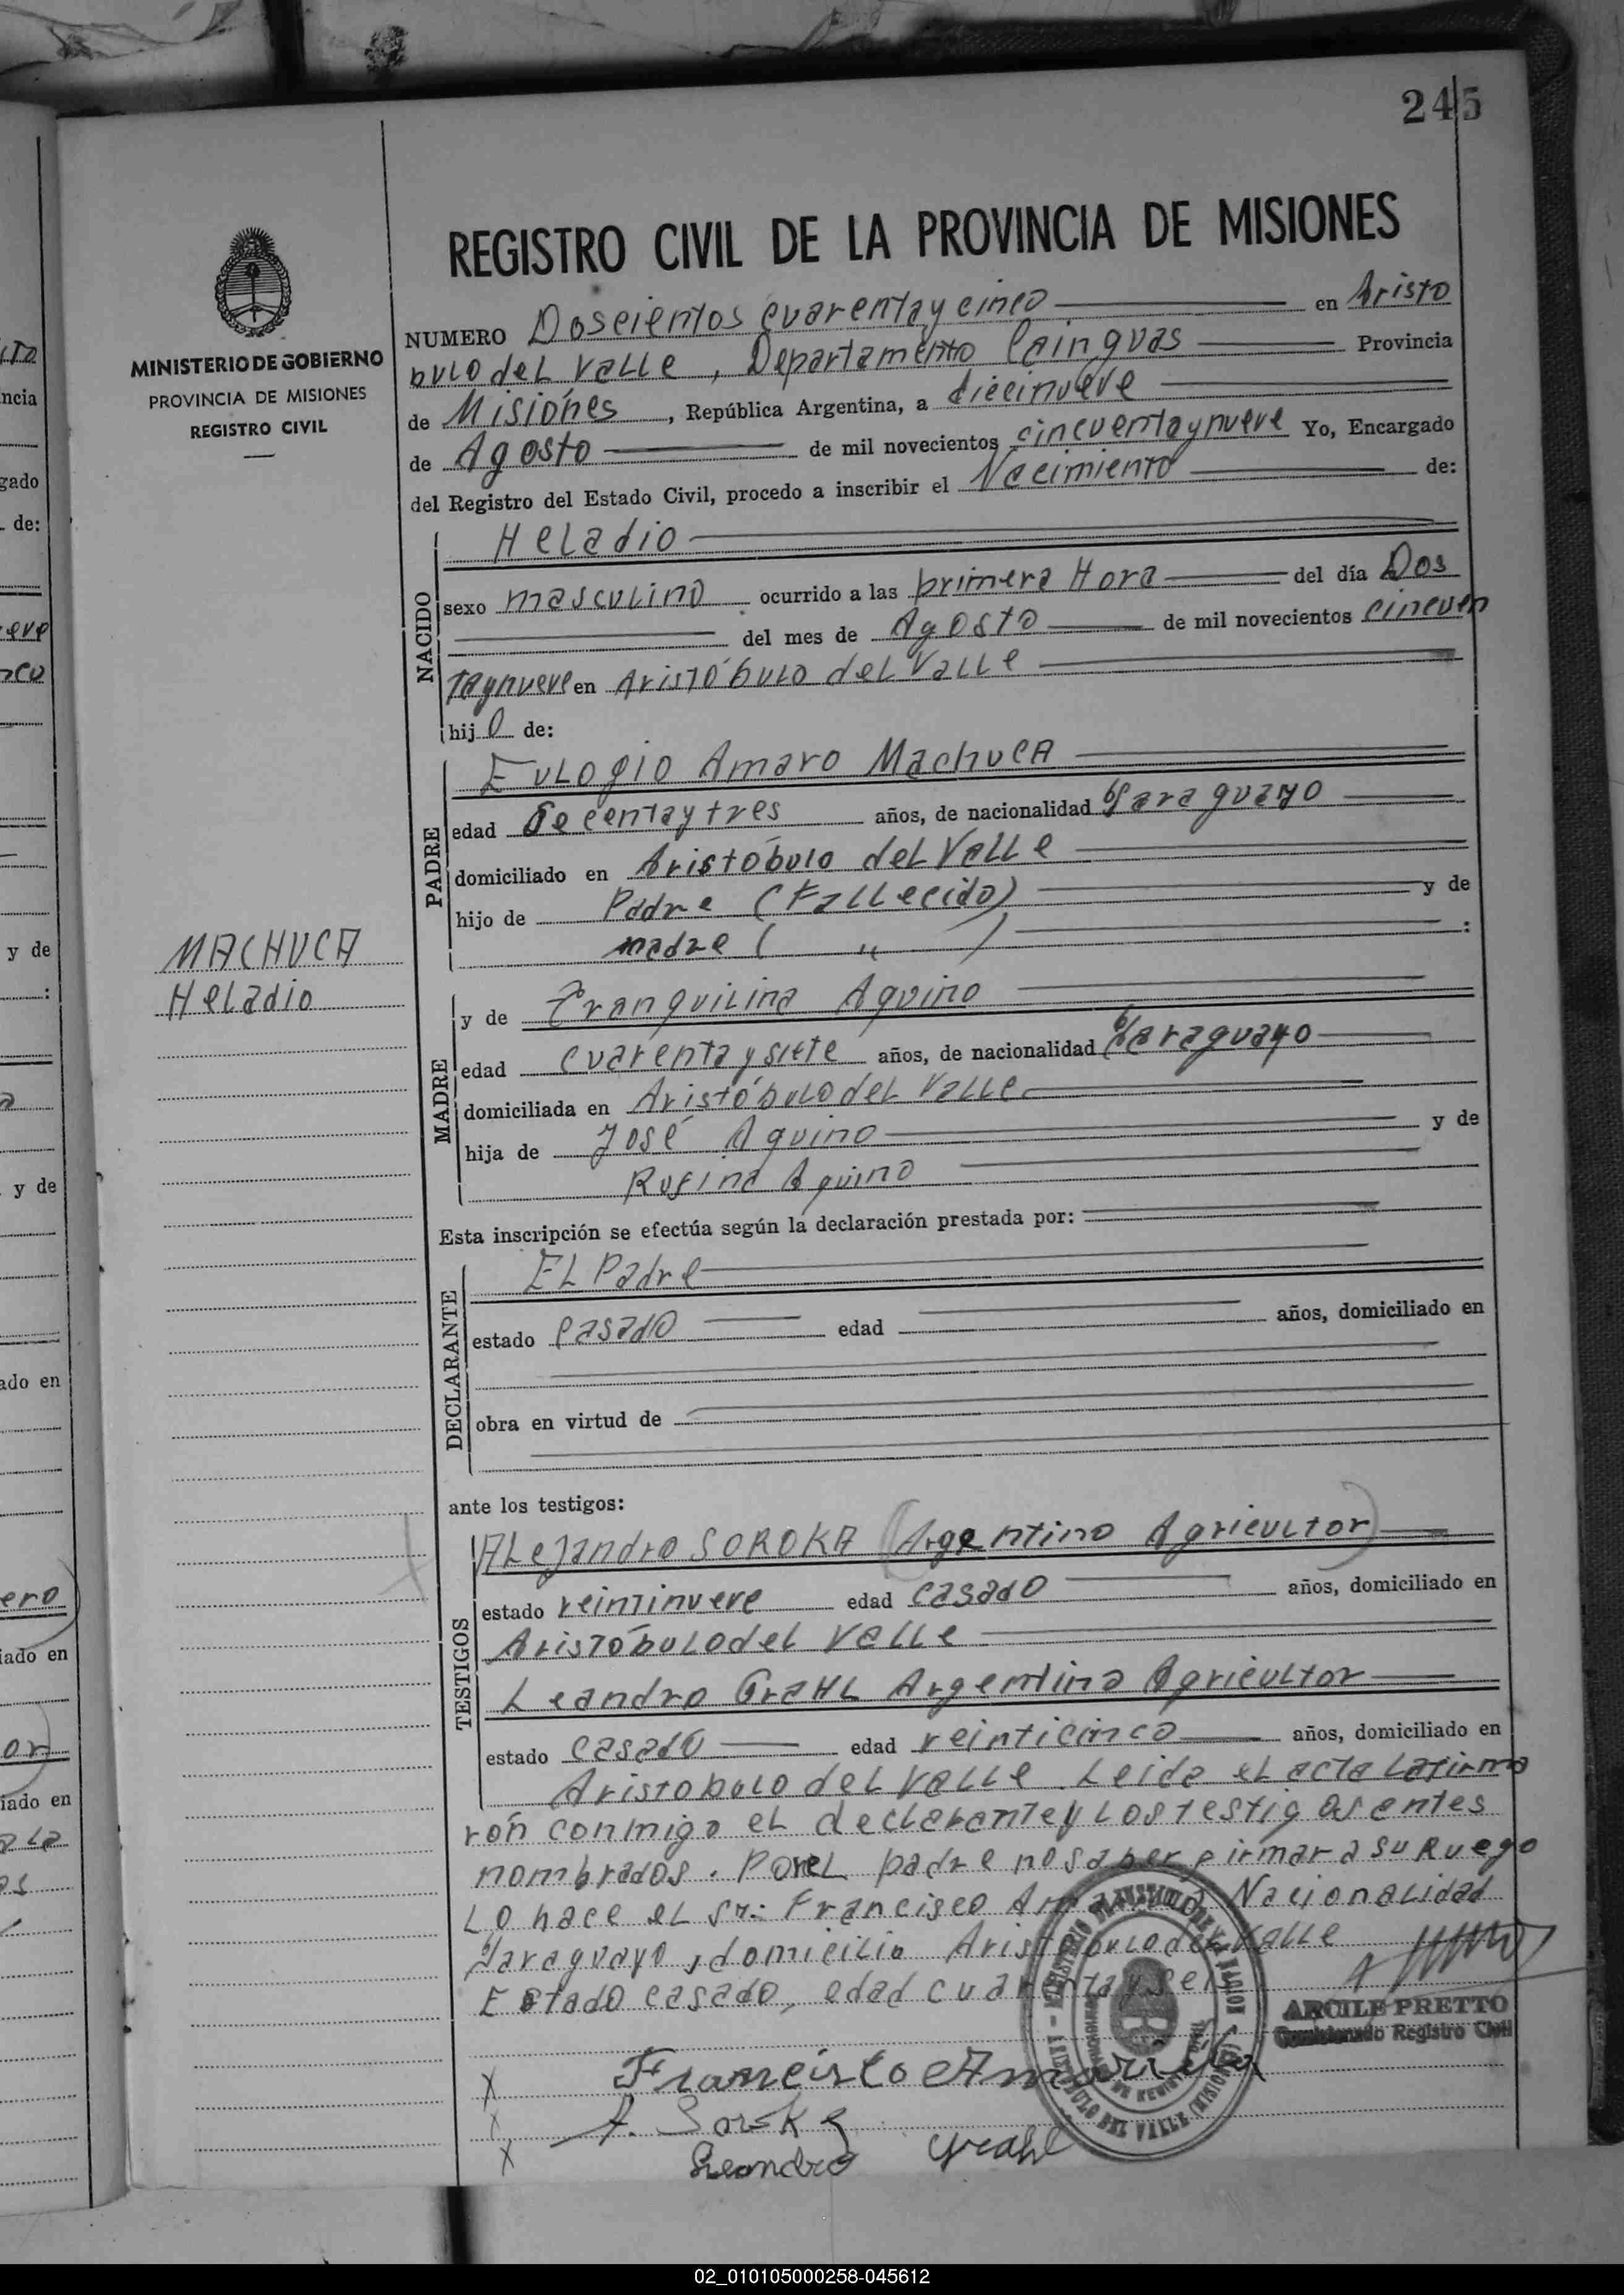 245
REGISTRO CIVIL DE LA PROVINCIA DE MISIONES
MINISTERIO DE GOBIERNO
PROVINCIA DE MISIONES
REGISTRO CIVIL
NUMERO Doscientos cuarenta y cinco en Aristo
bulo del Valle, Departamento Cainguas Provincia
de Misiones, República Argentina, a diecinueve
de Agosto de mil novecientos cincuenta y nueve Yo, Encargado
del Registro del Estado Civil, procedo a inscribir el Nacimiento de:
NACIDO
Heladio
sexo masculino ocurrido a las primera Hora del día Dos
del mes de Agosto de mil novecientos cincuen
ta y nueve en Aristóbulo del Valle
hijo de:
PADRE
Eulogio Amaro Machuca
edad Secenta y tres años, de nacionalidad Paraguayo
domiciliado en Aristóbulo del Valle
hijo de Padre (Fallecido) y de
madre ( " ) :
MACHUCA
Heladio
MADRE
y de Tranquilina Aquino
edad cuarenta y siete años, de nacionalidad Paraguayo
domiciliada en Aristóbulo del Valle
hija de José Aquino y de
Rufina Aquino
Esta inscripción se efectúa según la declaración prestada por:
DECLARANTE
El Padre
estado casado edad años, domiciliado en
obra en virtud de
ante los testigos:
TESTIGOS
Alejandro SOROKA (Argentino Agricultor)
estado veintinueve edad casado años, domiciliado en
Aristóbulo del Valle
Leandro GraHL Argentina Agricultor
estado casado edad veinticinco años, domiciliado en
Aristobulo del Valle. Leida el acta la firma
rón conmigo el declarante y los testigos antes
nombrados. Por el padre no saber firmar a su Ruego
lo hace el Sr: Francisco Nacionalidad
Paraguayo, domicilio Aristobulo del Valle
Estado casado, edad cuarenta y seis
ARCILE PRETTO
Comisionado Registro Civil
X Francisco
X A. Soroka
X Leandro Grahl
02_010105000258-045612